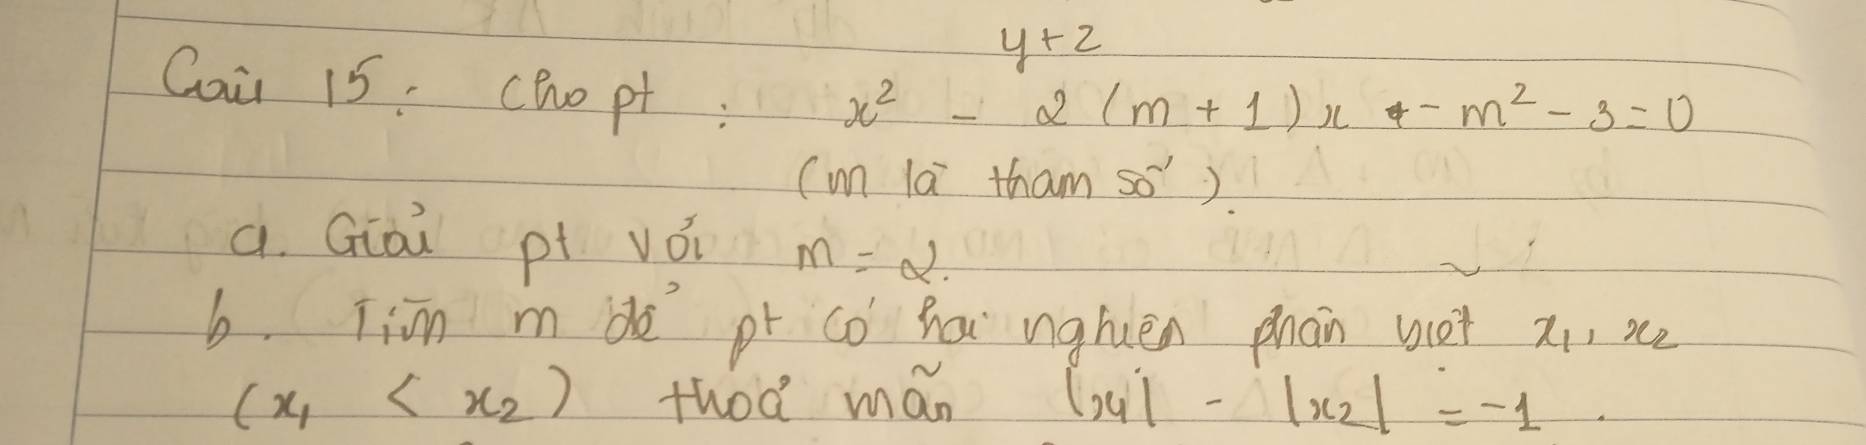 y+2
Câu 15: Cho pt: x² - 2(m+1)x - m² - 3 = 0
(m là tham số).
a. Giải pt với m = 2.
b. Tìm m để pt có hai nghiệm phân biệt x₁, x₂
(x₁ < x₂) thoả mãn |x₁| - |x₂| = -1.